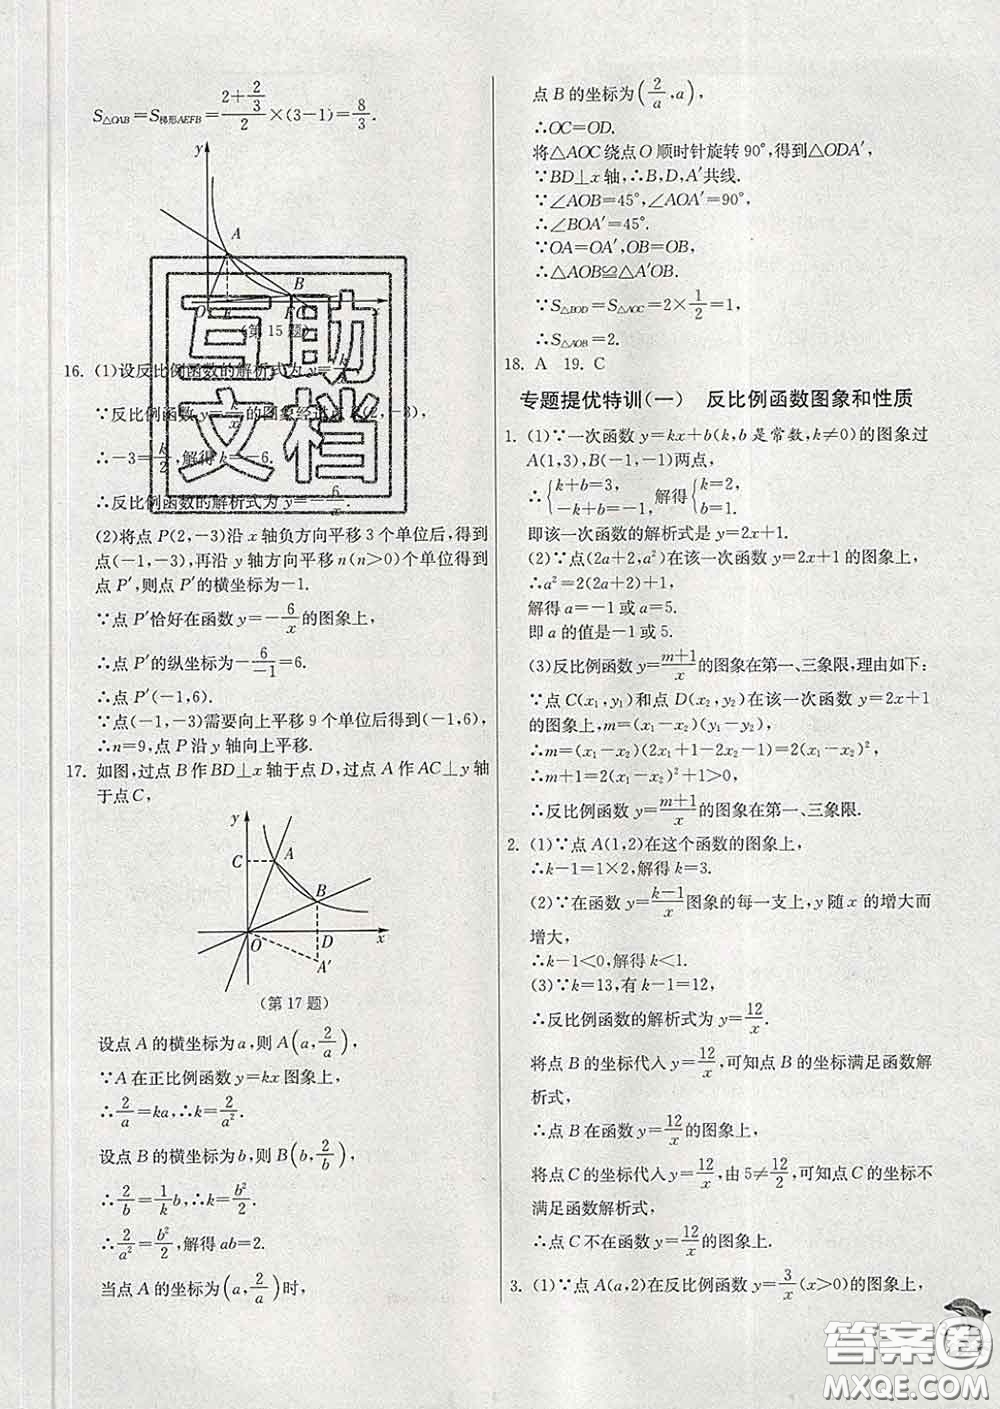 S△OAB=S梯形AEFB=(2+2/3)/2×(3−1)=8/3.
y
A
B
O E F x
(第15题)
16. (1)设反比例函数的解析式为y=k/x,
∵反比例函数y=k/x的图象经过点P(2,−3),
∴−3=k/2,解得k=−6.
∴反比例函数的解析式为y=−6/x.
(2)将点P(2,−3)沿x轴负方向平移3个单位后,得到
点(−1,−3),再沿y轴方向平移n(n>0)个单位得到
点P′,则点P′的横坐标为−1.
∵点P′恰好在函数y=−6/x的图象上,
∴点P′的纵坐标为−6/−1=6.
∴点P′(−1,6).
∵点(−1,−3)需要向上平移9个单位后得到(−1,6),
∴n=9,点P沿y轴向上平移.
17. 如图,过点B作BD⊥x轴于点D,过点A作AC⊥y轴
于点C,
y
C A
B
O D x
A′
(第17题)
设点A的横坐标为a,则A(a,2/a),
∵A在正比例函数y=kx图象上,
∴2/a=ka,∴k=2/a².
设点B的横坐标为b,则B(b,2/b),
∴2/b=1/k b,∴k=b²/2.
∴2/a²=b²/2,解得ab=2.
当点A的坐标为(a,2/a)时,
点B的坐标为(2/a,a),
∴OC=OD.
将△AOC绕点O顺时针旋转90°,得到△ODA′,
∵BD⊥x轴,∴B,D,A′共线.
∵∠AOB=45°,∠AOA′=90°,
∴∠BOA′=45°.
∵OA=OA′,OB=OB,
∴△AOB≌△A′OB.
∵S△BOD=S△AOC=2×1/2=1,
∴S△AOB=2.
18. A 19. C
专题提优特训(一) 反比例函数图象和性质
1. (1)∵一次函数y=kx+b(k,b是常数,k≠0)的图象过
A(1,3),B(−1,−1)两点,
∴{k+b=3, −k+b=−1, 解得{k=2, b=1.
即该一次函数的解析式是y=2x+1.
(2)∵点(2a+2,a²)在该一次函数y=2x+1的图象上,
∴a²=2(2a+2)+1,
解得a=−1或a=5.
即a的值是−1或5.
(3)反比例函数y=m+1/x的图象在第一、三象限,理由如下:
∵点C(x₁,y₁)和点D(x₂,y₂)在该一次函数y=2x+1
的图象上,m=(x₁−x₂)(y₁−y₂),
∴m=(x₁−x₂)(2x₁+1−2x₂−1)=2(x₁−x₂)²,
∴m+1=2(x₁−x₂)²+1>0,
∴反比例函数y=m+1/x的图象在第一、三象限.
2. (1)∵点A(1,2)在这个函数的图象上,
∴k−1=1×2,解得k=3.
(2)∵在函数y=k−1/x图象的每一支上,y随x的增大而
增大,
∴k−1<0,解得k<1.
(3)∵k=13,有k−1=12,
∴反比例函数的解析式为y=12/x.
将点B的坐标代入y=12/x,可知点B的坐标满足函数解
析式,
∴点B在函数y=12/x的图象上,
将点C的坐标代入y=12/x,由5≠12/2,可知点C的坐标不
满足函数解析式,
∴点C不在函数y=12/x的图象上.
3. (1)∵点A(a,2)在反比例函数y=3/x(x>0)的图象上,
互助
文档
答案圈
MXQE.COM